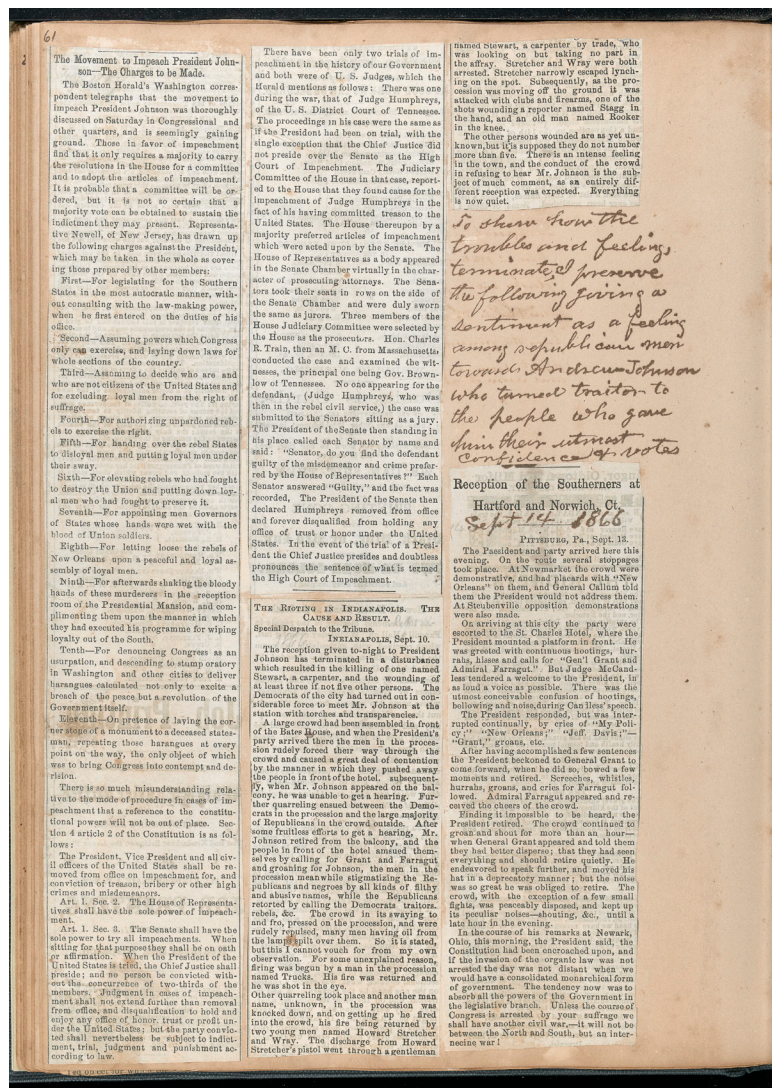 61
The Movement to Impeach President John-
son—The Charges to be Made.
The Boston Herald's Washington corres-
pondent telegraphs that the movement to
impeach President Johnson was thoroughly
discussed on Saturday in Congressional and
other quarters, and is seemingly gaining
ground. Those in favor of impeachment
find that it only requires a majority to carry
the resolutions in the House for a committee
and to adopt the articles of impeachment.
It is probable that a committee will be or-
dered, but it is not so certain that a
majority vote can be obtained to sustain the
indictment they may present. Representa-
tive Newell, of New Jersey, has drawn up
the following charges against the President,
which may be taken in the whole as cover
ing those prepared by other members:
First—For legislating for the Southern
States in the most autocratic manner, with-
out consulting with the law-making power,
when he first entered on the duties of his
office.
Second—Assuming powers which Congress
only can exercise, and laying down laws for
whole sections of the country.
Third—Assuming to decide who are and
who are not citizens of the United States and
for excluding loyal men from the right of
suffrage.
Fourth—For authorizing unpardoned reb-
els to exercise the right.
Fifth—For handing over the rebel States
to disloyal men and putting loyal men under
their sway.
Sixth—For elevating rebels who had fought
to destroy the Union and putting down loy-
al men who had fought to preserve it.
Seventh—For appointing men Governors
of States whose hands were wet with the
blood of Union soldiers.
Eighth—For letting loose the rebels of
New Orleans upon a peaceful and loyal as-
sembly of loyal men.
Ninth—For afterwards shaking the bloody
hands of these murderers in the reception
room of the Presidential Mansion, and com-
plimenting them upon the manner in which
they had executed his programme for wiping
loyalty out of the South.
Tenth—For denouncing Congress as an
usurpation, and descending to stump oratory
in Washington and other cities to deliver
harangues calculated not only to excite a
breach of the peace but a revolution of the
Government itself.
Eleventh—On pretence of laying the cor-
ner stone of a monument to a deceased states-
man, repeating those harangues at every
point on the way, the only object of which
was to bring Congress into contempt and de-
rision.
There is so much misunderstanding rela-
tive to the mode of procedure in cases of im-
peachment that a reference to the constitu-
tional powers will not be out of place. Sec-
tion 4 article 2 of the Constitution is as fol-
lows:
The President, Vice President and all civ-
il officers of the United States shall be re-
moved from office on impeachment for, and
conviction of treason, bribery or other high
crimes and misdemeanors.
Art. 1. Sec. 2. The House of Representa-
tives shall have the sole power of impeach-
ment.
Art. 1. Sec. 3. The Senate shall have the
sole power to try all impeachments. When
sitting for that purpose they shall be on oath
or affirmation. When the President of the
United States is tried, the Chief Justice shall
preside; and no person be convicted with-
out the concurrence of two-thirds of the
members. Judgment in cases of impeach-
ment shall not extend further than removal
from office, and disqualification to hold and
enjoy any office of honor, trust or profit un-
der the United States; but the party convic-
ted shall nevertheless be subject to indict-
ment, trial, judgment and punishment ac-
cording to law.
There have been only two trials of im-
peachment in the history of our Government
and both were of U. S. Judges, which the
Herald mentions as follows: There was one
during the war, that of Judge Humphreys,
of the U. S. District Court of Tennessee.
The proceedings in his case were the same as
if the President had been on trial, with the
single exception that the Chief Justice did
not preside over the Senate as the High
Court of Impeachment. The Judiciary
Committee of the House in that case, report-
ed to the House that they found cause for the
impeachment of Judge Humphreys in the
fact of his having committed treason to the
United States. The House thereupon by a
majority preferred articles of impeachment
which were acted upon by the Senate. The
House of Representatives as a body appeared
in the Senate Chamber virtually in the char-
acter of prosecuting attorneys. The Sena-
tors took their seats in rows on the side of
the Senate Chamber and were duly sworn
the same as jurors. Three members of the
House Judiciary Committee were selected by
the House as the prosecutors. Hon. Charles
R. Train, then an M. C. from Massachusetts
conducted the case and examined the wit-
nesses, the principal one being Gov. Brown-
low of Tennessee. No one appearing for the
defendant, (Judge Humphreys, who was
then in the rebel civil service,) the case was
submitted to the Senators sitting as a jury.
The President of the Senate then standing in
his place called each Senator by name and
said: "Senator, do you find the defendant
guilty of the misdemeanor and crime prefer-
red by the House of Representatives?" Each
Senator answered "Guilty," and the fact was
recorded, The President of the Senate then
declared Humphreys removed from office
and forever disqualified from holding any
office of trust or honor under the United
States. In the event of the trial of a Presi-
dent the Chief Justice presides and doubtless
pronounces the sentence of what is termed
the High Court of Impeachment.
THE RIOTING IN INDIANAPOLIS. THE
CAUSE AND RESULT.
Special Despatch to the Tribune.
INEIANAPOLIS, Sept. 10.
The reception given to-night to President
Johnson has terminated in a disturbance
which resulted in the killing of one named
Stewart, a carpenter, and the wounding of
at least three if not five other persons. The
Democrats of the city had turned out in con-
siderable force to meet Mr. Johnson at the
station with torches and transparencies.
A large crowd had been assembled in front
of the Bates House, and when the President's
party arrived there the men in the proces-
sion rudely forced their way through the
crowd and caused a great deal of contention
by the manner in which they pushed away
the people in front of the hotel. subsequent-
ly, when Mr. Johnson appeared on the bal-
cony. he was unable to get a hearing. Fur-
ther quarreling ensued between the Demo-
crats in the procession and the large majority
of Republicans in the crowd outside. After
some fruitless efforts to get a hearing, Mr.
Johnson retired from the balcony, and the
people in front of the hotel amsued them-
selves by calling for Grant and Farragut
and groaning for Johnson, the men in the
procession meanwhile stigmatizing the Re-
publicans and negroes by all kinds of filthy
and abusive names, while the Republicans
retorted by calling the Democrats traitors.
rebels, &c. The crowd in its swaying to
and fro, pressed on the procession, and were
rudely repulsed, many men having oil from
the lamps spilt over them. So it is stated,
but this I cannot vouch for from my own
observation. For some unexplained reason,
firing was begun by a man in the procession
named Trucks. His fire was returned and
he was shot in the eye.
Other quarreling took place and another man
name, unknown, in the procession was
knocked down, and on getting up he fired
into the crowd, his fire being returned by
two young men named Howard Stretcher
and Wray. The discharge from Howard
Stretcher's pistol went through a gentleman
named Stewart, a carpenter by trade, who
was looking on but taking no part in
the affray. Stretcher and Wray were both
arrested. Stretcher narrowly escaped lynch-
ing on the spot. Subsequently, as the pro-
cession was moving off the ground it was
attacked with clubs and firearms, one of the
shots wounding a reporter named Stagg in
the hand, and an old man named Rooker
in the knee.
The other persons wounded are as yet un-
known, but it is supposed they do not number
more than five. There is an intense feeling
in the town, and the conduct of the crowd
in refusing to hear Mr. Johnson is the sub-
ject of much comment, as an entirely dif-
ferent reception was expected. Everything
is now quiet.
To show how the
troubles and feelings
terminate, I preserve
the following giving a
sentiment as a feeling
among republican men
towards Andrew Johnson
who turned traitor to
the people who gave
him their utmost
confidence & votes
Reception of the Southerners at
Hartford and Norwich, Ct.
Sept 14 1866
PITTSBURG, Pa., Sept. 13.
The President and party arrived here this
evening. On the route several stoppages
took place. At Newmarket the crowd were
demonstrative, and had placards with "New
Orleans" on them, and General Callum told
them the President would not address them.
At Steubenville opposition demonstrations
were also made.
On arriving at this city the party were
escorted to the St. Charles Hotel, where the
President mounted a platform in front. He
was greeted with continuous hootings, hur-
rahs, hisses and calls for "Gen'l Grant and
Admiral Farragut." But Judge McCand-
less tendered a welcome to the President, in
as loud a voice as possible. There was the
utmost conceivable confusion of hootings,
bellowing and noise, during Can less' speech.
The President responded, but was inter-
rupted continually, by cries of "My Pol-
icy;" "New Orleans;" "Jeff. Davis;"—
"Grant," groans, etc.
After having accomplished a few sentences
the President beckoned to General Grant to
come forward, when he did so, bowed a few
moments and retired. Screeches, whistles,
hurrahs, groans, and cries for Farragut fol-
lowed. Admiral Farragut appeared and re-
ceived the cheers of the crowd.
Finding it impossible to be heard, the
President retired. The crowd continued to
groan and shout for more than an hour—
when General Grant appeared and told them
they had better disperse; that they had seen
everything and should retire quietly. He
endeavored to speak further, and moved his
hat in a deprecatory manner; but the noise
was so great he was obliged to retire. The
crowd, with the exception of a few small
fights, was peaceably disposed, and kept up
its peculiar noises—shouting, &c., until a
late hour in the evening.
In the course of his remarks at Newark,
Ohio, this morning, the President said, the
Constitution had been encroached upon, and
if the invasion of the organic law was not
arrested the day was not distant when we
would have a consolidated monarchical form
of government. The tendency now was to
absorb all the powers of the Government in
the legislative branch. Unless the course of
Congress is arrested by your suffrage we
shall have another civil war,—it will not be
between the North and South, but an inter-
necine war!